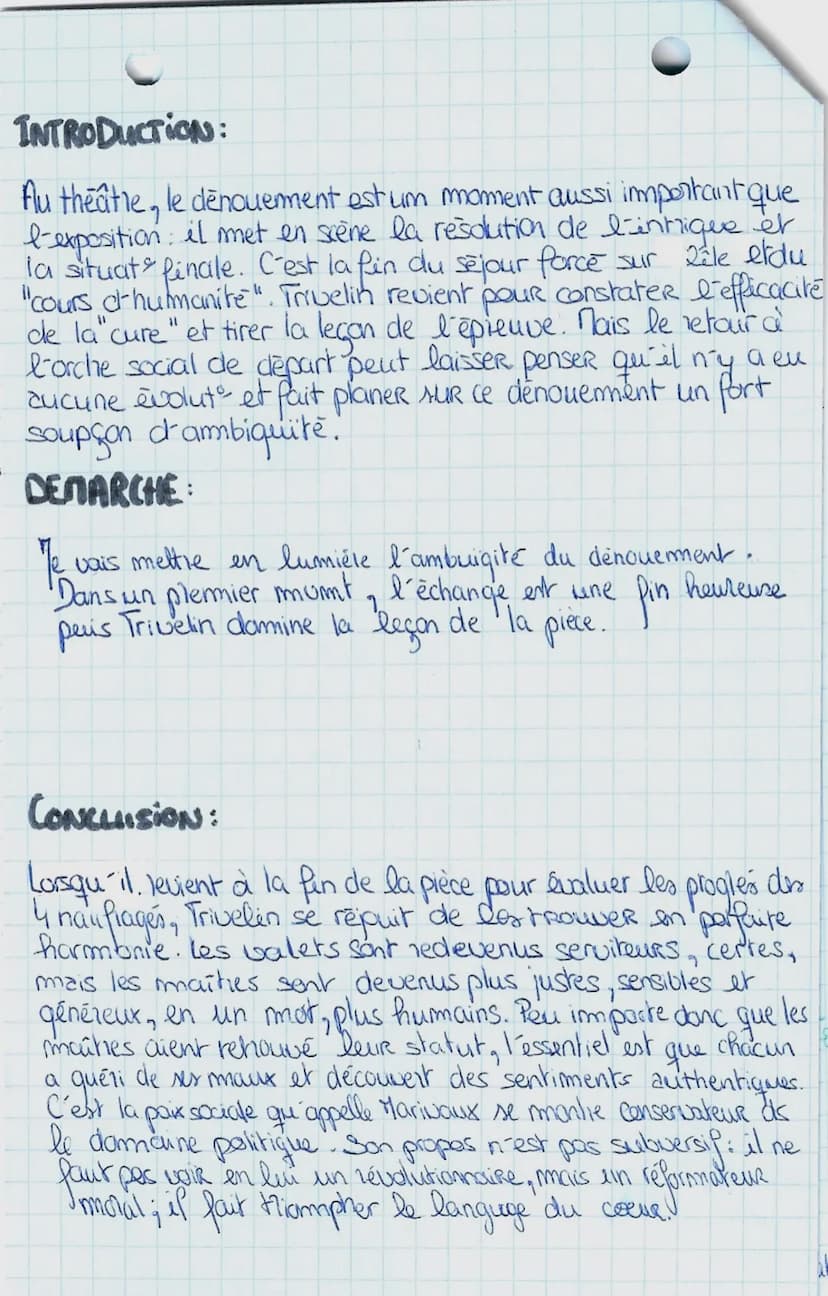 INTRODUCTION:
Au théâtre, le dénouement est un moment aussi important que
l'exposition: il met en scène la résolution de l'intrigue et
la situat° finale. C'est la fin du séjour forcé sur l'île et du
"cours d'humanité". Trivelin revient pour constater l'efficacité
de la "cure" et tirer la leçon de l'épreuve. Mais le retour à
l'orche social de départ peut laisser penser qu'il n'y a eu
aucune évolut° et fait planer sur ce dénouement un fort
soupçon d'ambiguité.
DEMARCHE:
Je vais mettre en lumière l'ambuigité du dénouement.
Dans un plemier momnt, l'échange est une fin heureuse
puis Trivelin domine la leçon de la pièce.
CONCLUSION:
Lorsqu'il revient à la fin de la pièce pour évaluer les progrés des
4 naufragés, Trivelin se réjouit de les trouver en parfaite
harmonie. Les valets sont redevenus serviteurs, certes,
mais les maîtres sont devenus plus justes, sensibles et
généreux, en un mot, plus humains. Peu importe donc que les
maîtres aient retrouvé leur statut, l'essentiel est que chacun
a guéri de ses maux et découvert des sentiments authentiques.
C'est la paix sociale qu'appelle Marivaux se montre conservateur ds
le domaine politique. Son propos n'est pas subversif: il ne
faut pas voir en lui un révolutionnaire, mais un réformateur
moral; il fait triompher le language du coeur.